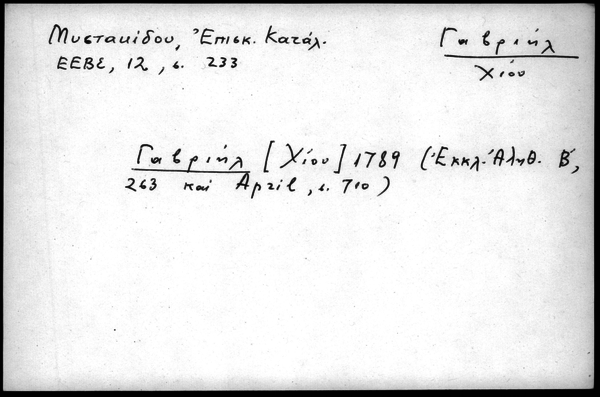 Μυστακίδου, Ἐπισκ. Κατάλ.
ΕΕΒΣ, 12, σ. 233
Γαβριήλ
Χίου
Γαβριήλ [Χίου] 1789 (Ἐκκλ. Ἀληθ. Β΄,
263 καὶ April, σ. 710)